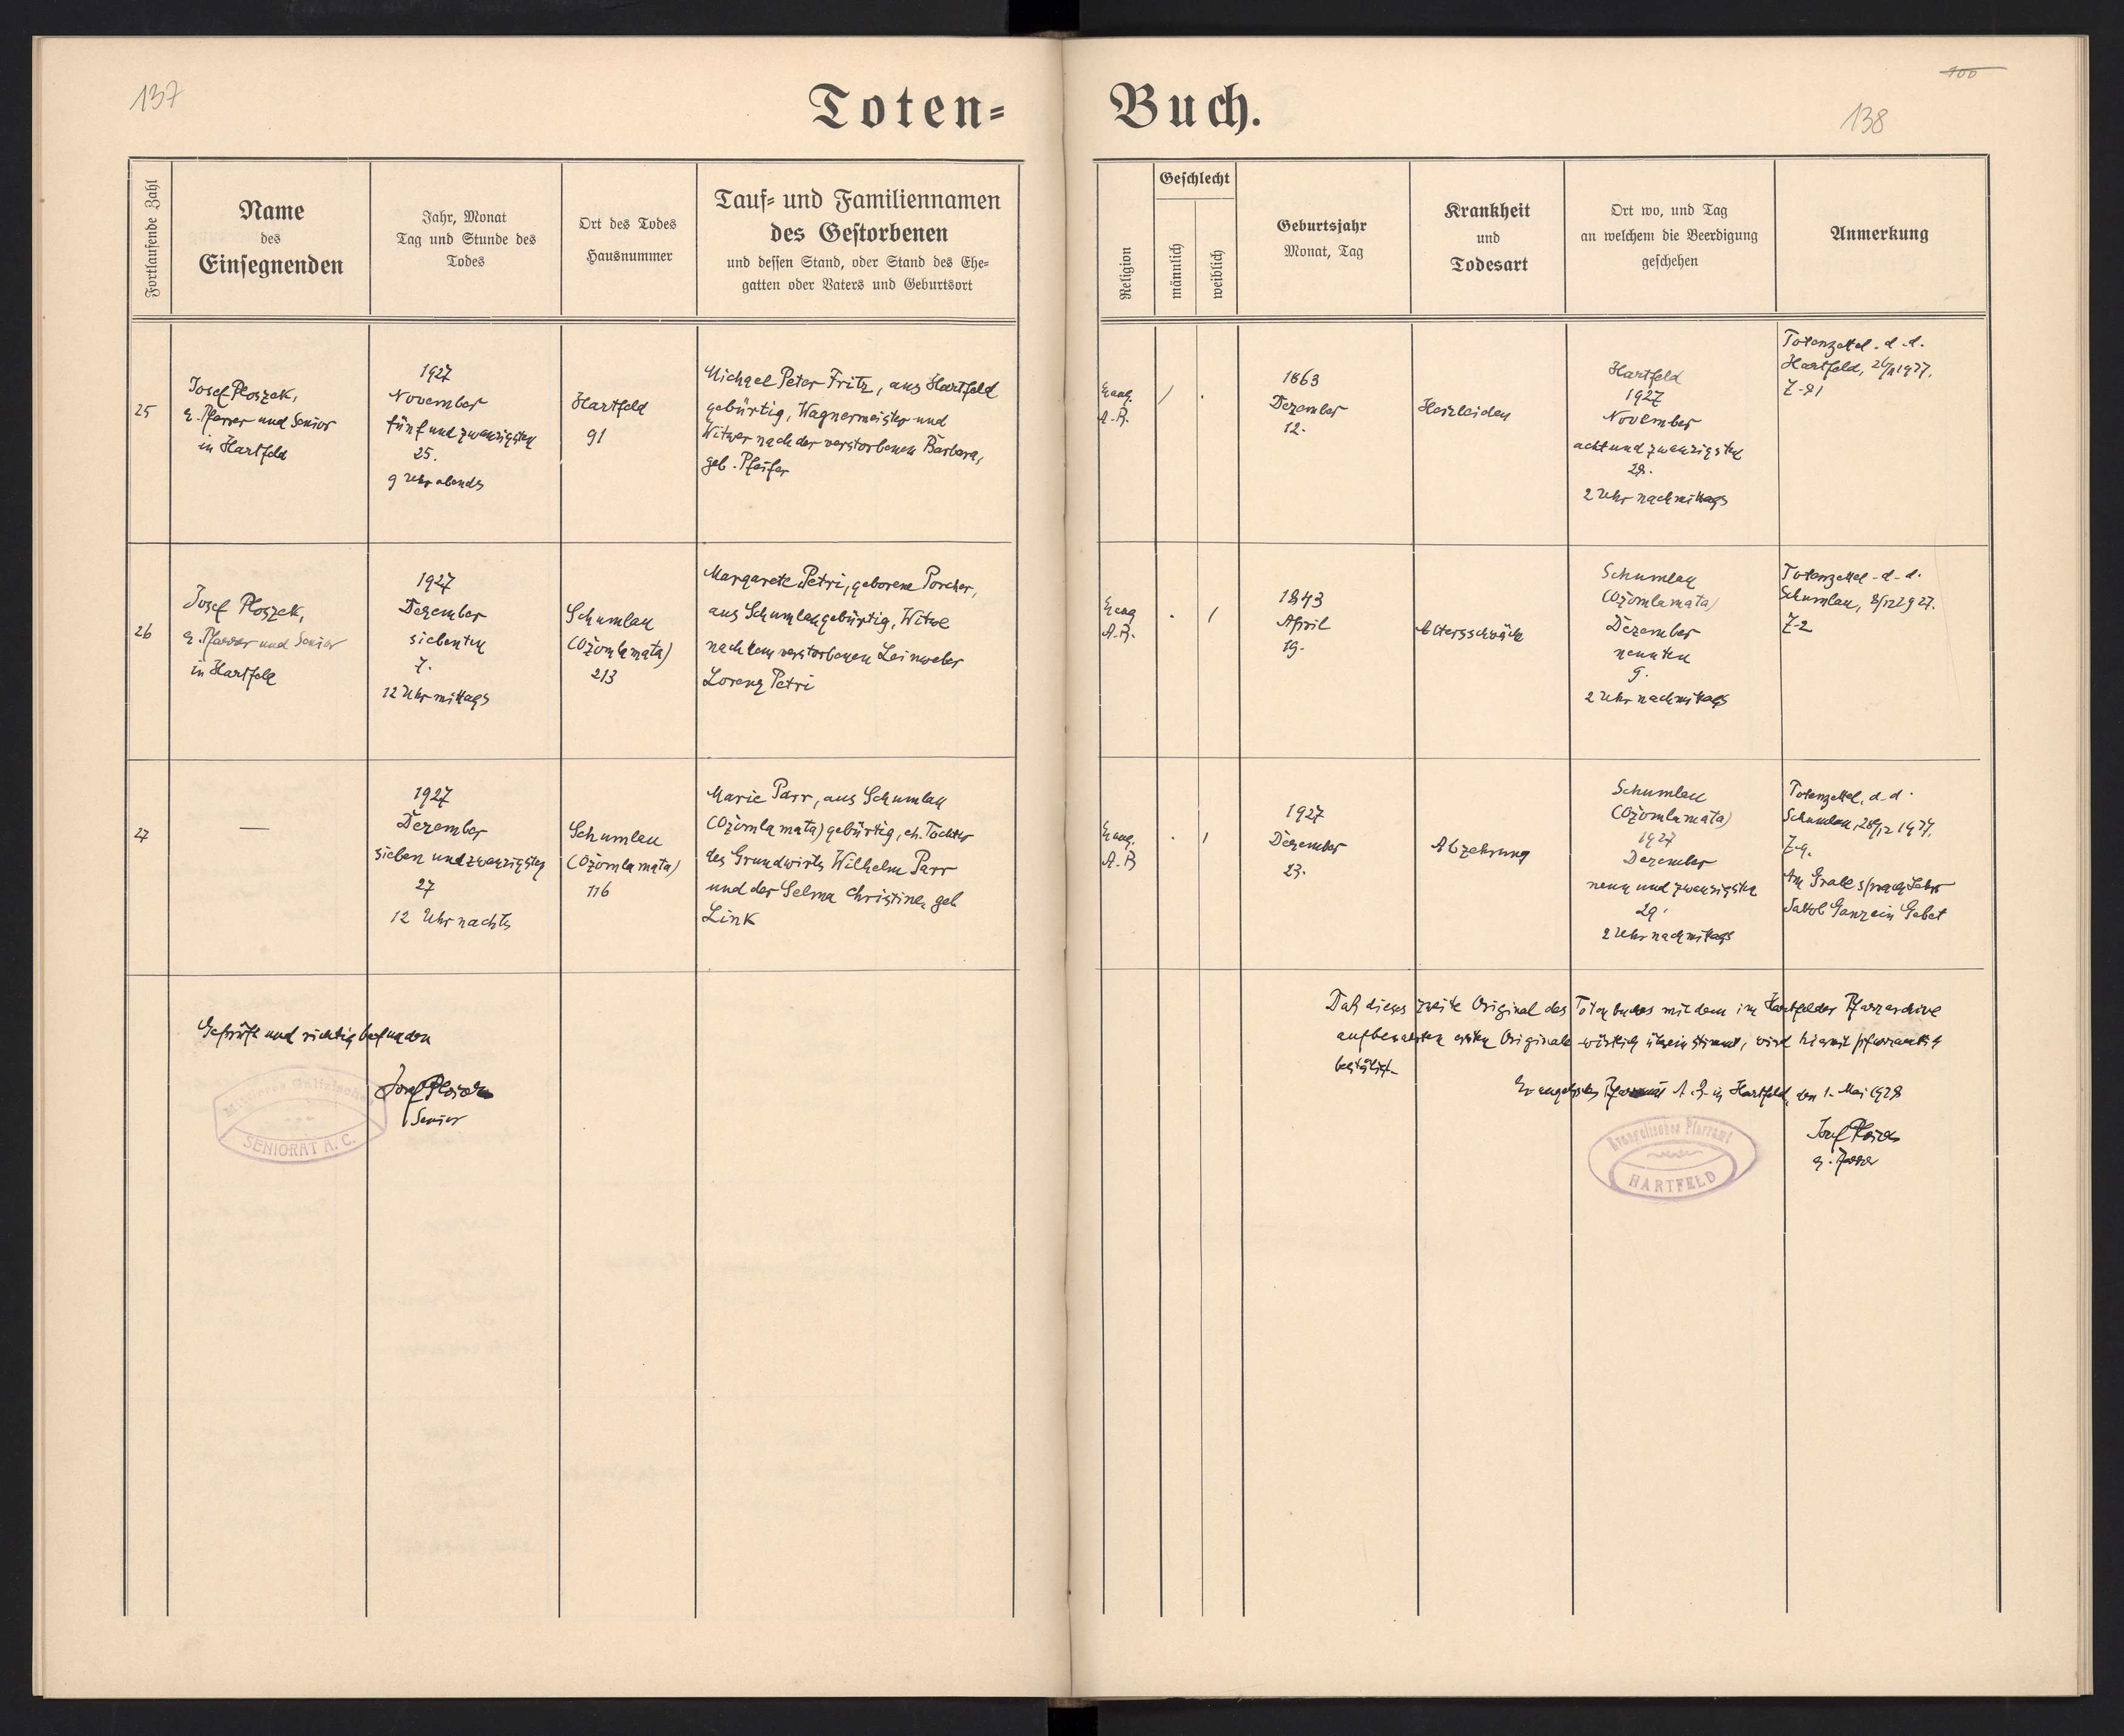 137
Toten=
Buch.
100
138
Fortlaufende Zahl
Name
des
Einsegnenden
Jahr, Monat
Tag und Stunde des
Todes
Ort des Todes
Hausnummer
Tauf= und Familiennamen
des Gestorbenen
und dessen Stand, oder Stand des Ehe=
gatten oder Vaters und Geburtsort
Religion
Geschlecht
männlich
weiblich
Geburtsjahr
Monat, Tag
Krankheit
und
Todesart
Ort wo, und Tag
an welchem die Beerdigung
geschehen
Anmerkung
25
Josef Ploszek,
e. Pfarrer und Senior
in Hartfeld
1927
November
fünf und zwanzigsten
25.
9 Uhr abends
Hartfeld
91
Michael Peter Fritz, aus Hartfeld
gebürtig, Wagnermeister und
Witwer nach der verstorbenen Barbara,
geb. Pfeifer
Evang.
A.B.
/
.
1863
Dezember
12.
Herzleiden
Hartfeld
1927
November
acht und zwanzigsten
28.
2 Uhr nachmittags
Totenzettel. d. d.
Hartfeld, 26/11 1927.
26
Josef Ploszek,
e. Pfarrer und Senior
in Hartfeld
1927
Dezember
siebenten
7.
12 Uhr mittags
Schumlau
(Ożomla mata)
213
Margarete Petri, geborene Porcher,
aus Schumlau gebürtig, Witwe
nach dem verstorbenen Leinweber
Lorenz Petri
Evang
A.B.
.
/
1843
April
19.
Altersschwäche
Schumlau
(Ożomla mata)
Dezember
neunten
9.
2 Uhr nachmittags
Totenzettel - d. d.
Schumlau, 8/12 1927.
Z-2
27
—
1927
Dezember
sieben und zwanzigsten
27
12 Uhr nachts
Schumlau
(Ożomla mata)
116
Marie Parr, aus Schumlau
(Ożomla mata) gebürtig, eh. Tochter
des Grundwirts Wilhelm Parr
und der Selma Christine, geb
Link
Evang.
A.B
.
/
1927
Dezember
23.
Abzehrung
Schumlau
(Ożomla mata)
1927
Dezember
neun und zwanzigsten
29.
2 Uhr nachmittags
Totenzettel, d. d.
Schumlau, 28/12 1927.
Z-9.
Am Grabe sprach Lehrer
Jakob Ganz ein Gebet
Geprüft und richtig befunden
Josef Ploszek
Senior
Mittleres Galizisches
SENIORAT A. C.
Daß dieses zweite Original des Totenbuches mit dem im Hartfelder Pfarrarchive
aufbewahrten ersten Originale wörtlich übereinstimmt, wird hiemit pfarramtlich
bestätigt.
Evangelisches Pfarramt A. B. in Hartfeld, den 1. Mai 1928
Josef Ploszek
e. Pfarrer
Evangelisches Pfarramt
HARTFELD